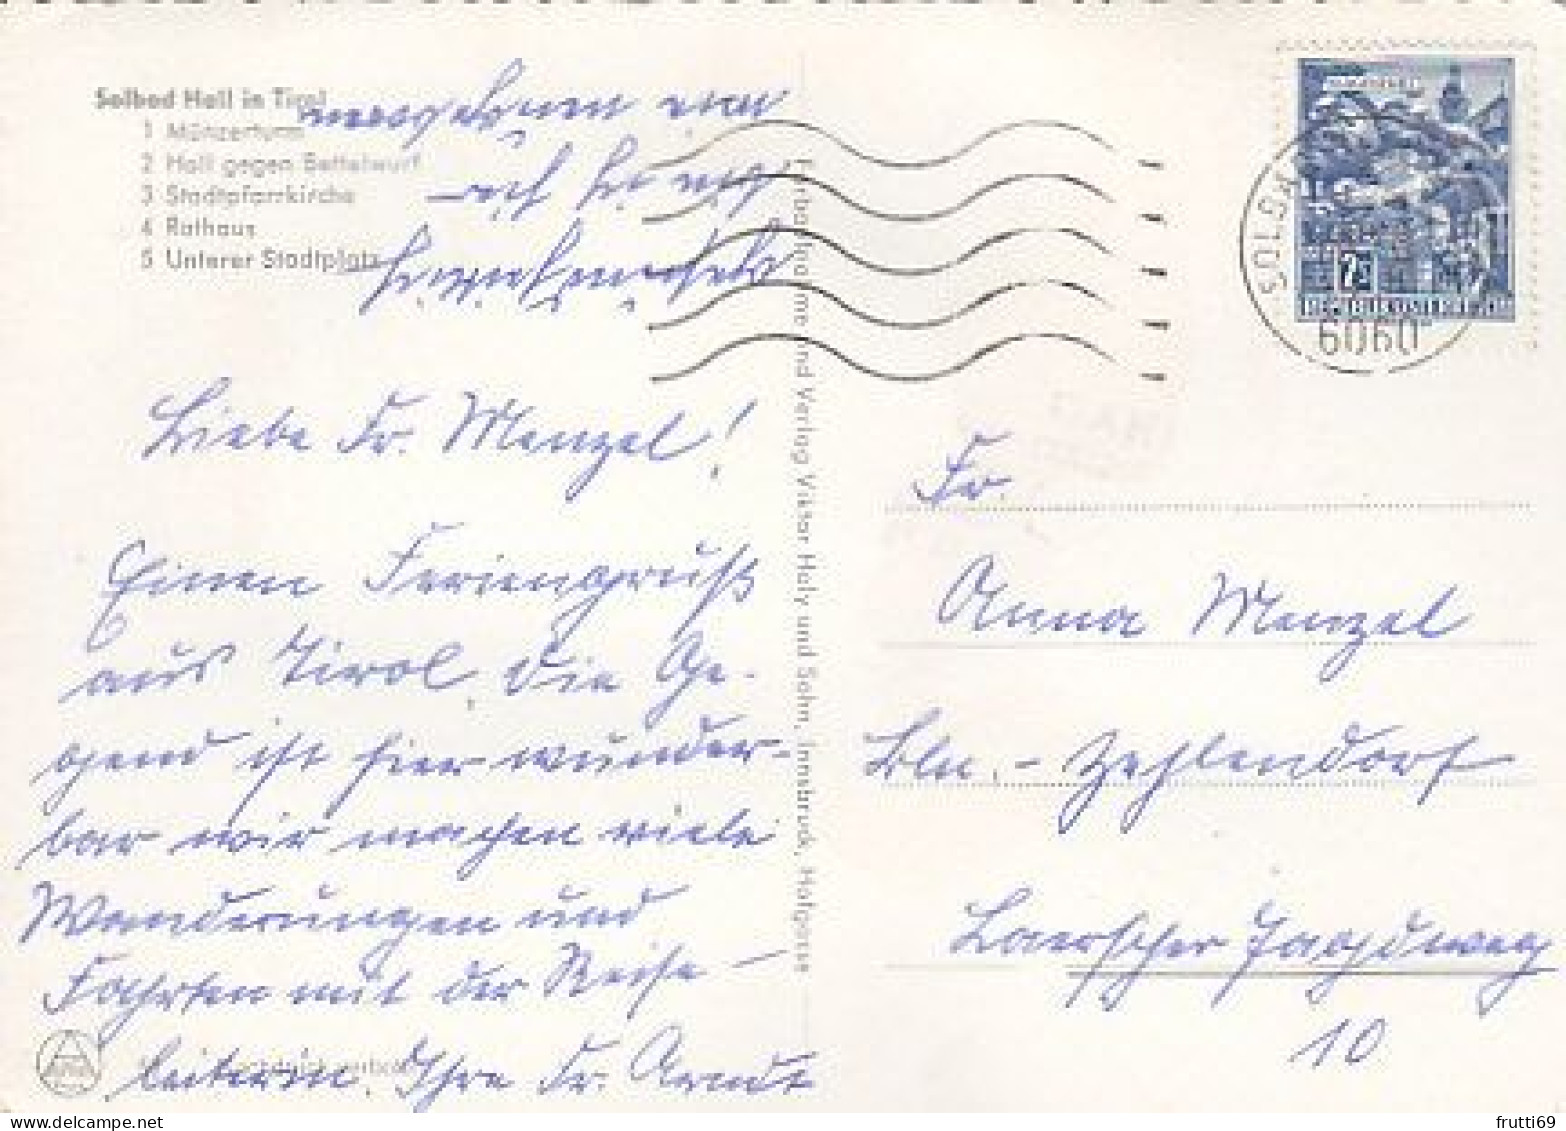 Solbad Hall in Tirol
1 Münzerturm
2 Hall gegen Bettelwurf
3 Stadtpfarrkirche
4 Rathaus
5 Unterer Stadtplatz
Liebe Fr. Menzel!
Einen Feriengruß
aus Tirol. Die Ge-
gend ist hier wunder-
bar wir machen viele
Wanderungen und
Fahrten mit der Reise-
leiterin. Ihre Fr. Arndt
Farbaufnahme und Verlag Viktor Holy und Sohn, Innsbruck, Hofgasse
SOLBA
6060
REPUBLIK ÖSTERREICH
Fr.
Anna Menzel
Bln.-Zehlendorf
Laehrscher Jagdweg
10
frutti69